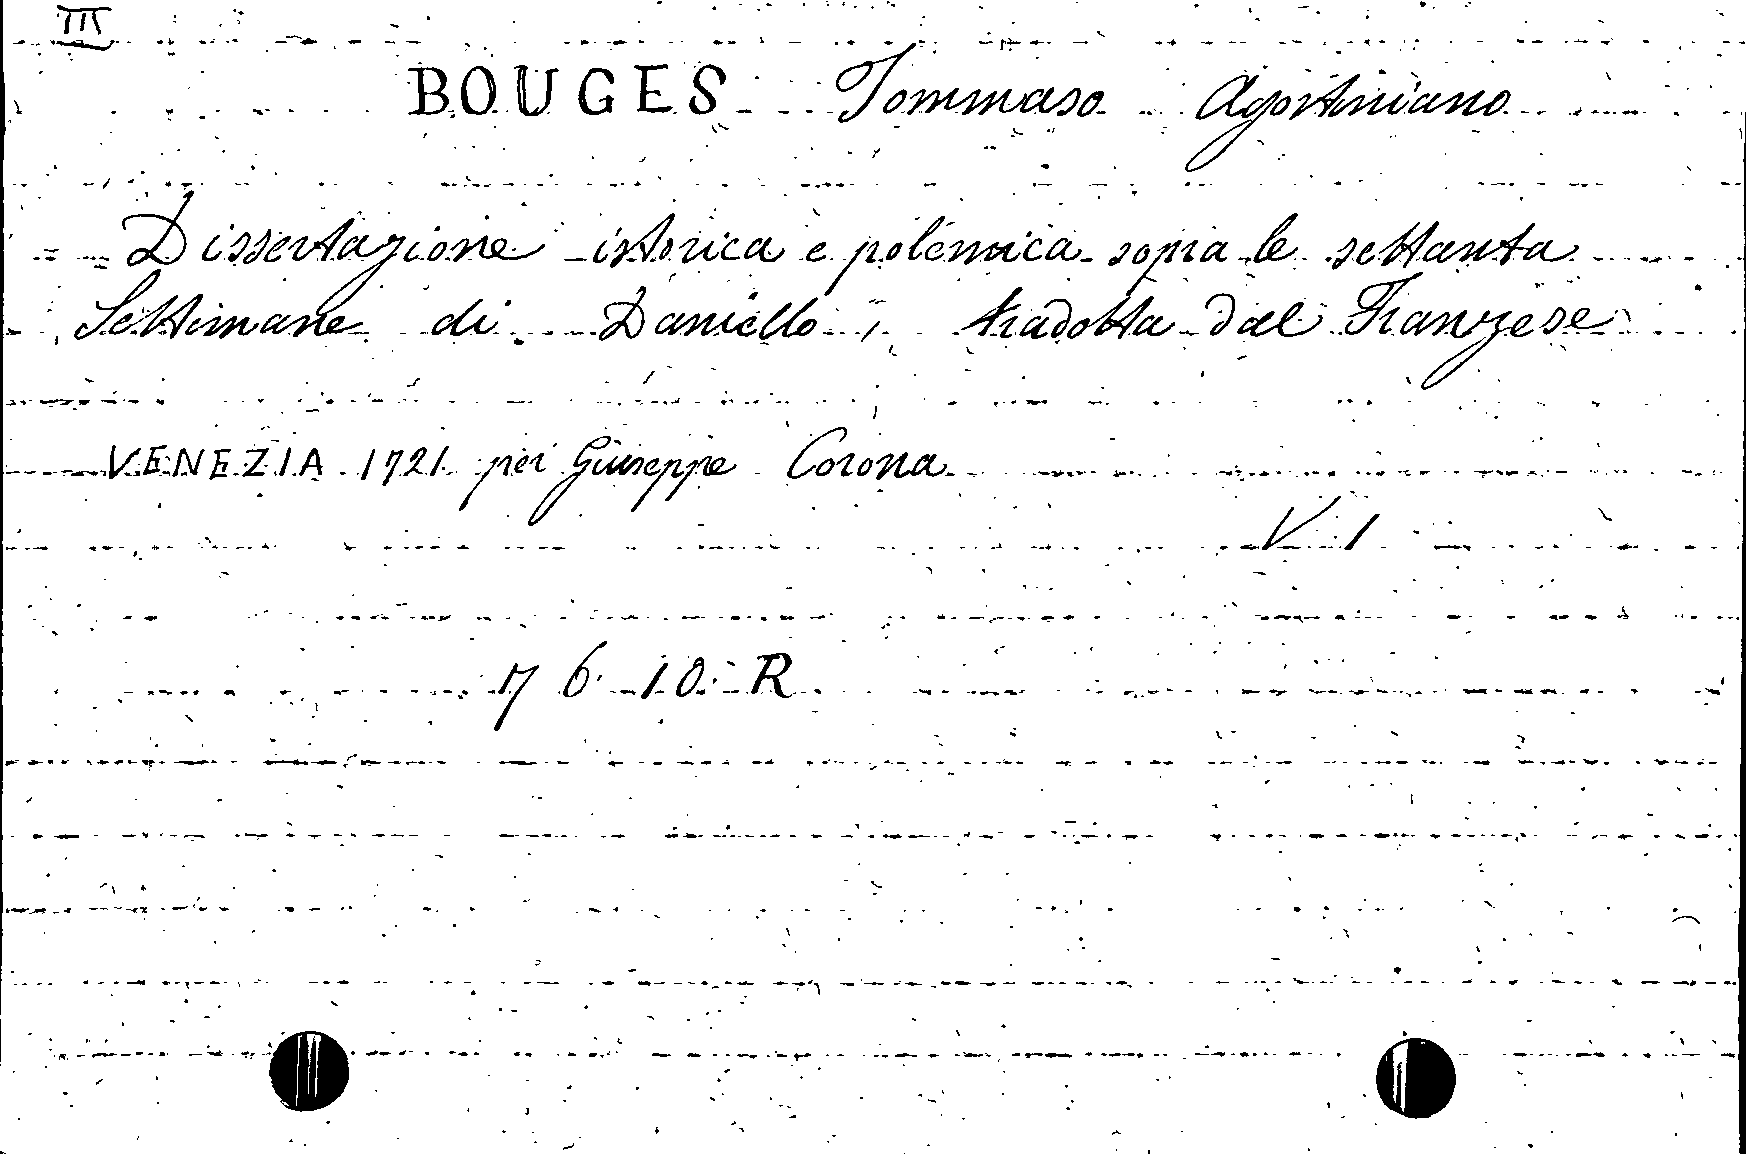 III
BOUGES Tommaso Agostiniano
Dissertazione istorica e polemica sopra le settanta
Settimane di Daniello, tradotta dal Franzese
VENEZIA 1721 per Giuseppe Corona
V. 1
7 6 10. R